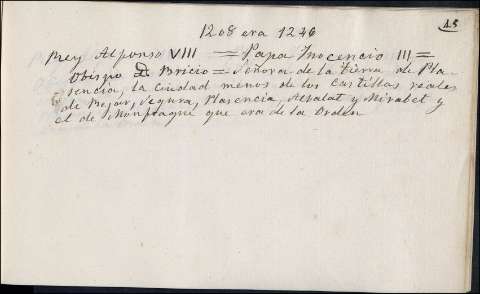 15
1208 era 1246
Rey Alfonso VIII = Papa Inocencio III =
Obispo D. Bricio = Señora de la tierra de Pla-
sencia, la ciudad menos de los castillos reales
de Bejar, Segura, Plasencia, Albalat y Mirabel y
el de Monfragüe que era de la Orden